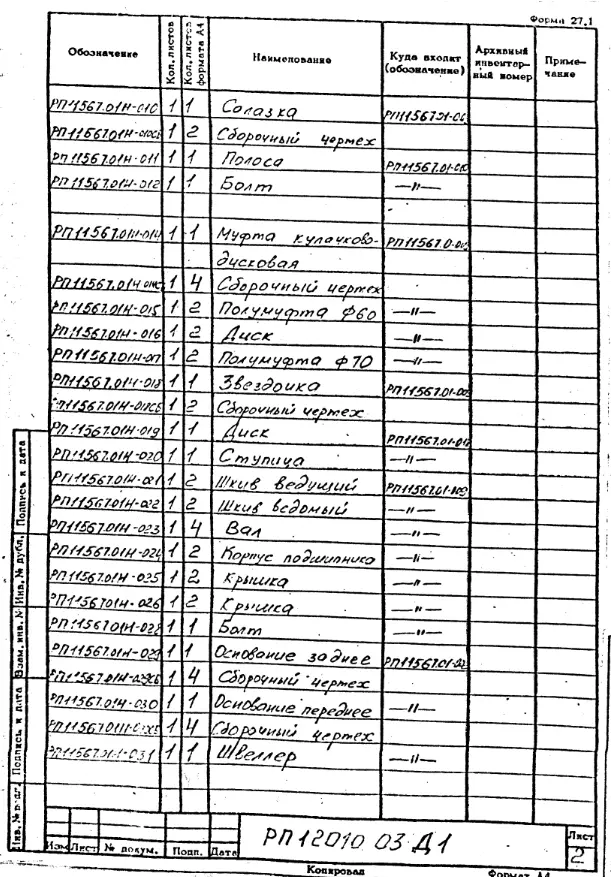 Форма 27.1
Обозначение Кол. листов Кол. листов формата А4 Наименование Куда входит (обозначение) Архивный инвентарный номер Примечание
РП11567.01Н-010 1 1 Салазка
РП11567.01Н-010СБ 1 2 Сборочный чертеж
РП11567.01Н-011 1 1 Полоса
РП11567.01Н-012 1 1 Болт —"—
РП11567.01Н-014 1 1 Муфта кулачково-
дисковая
РП11567.01Н 1 4 Сборочный чертеж
РП11567.01Н-015 1 2 Полумуфта ф60 —"—
РП11567.01Н-016 1 2 Диск —"—
РП11567.01Н-017 1 2 Полумуфта ф70 —"—
РП11567.01Н-018 1 1 Звездочка
РП11567.01Н-018СБ 1 2 Сборочный чертеж
РП11567.01Н-019 1 1 Диск
РП11567.01Н-020 1 1 Ступица —"—
РП11567.01Н-021 1 2 Шкив ведущий
РП11567.01Н-022 1 2 Шкив ведомый —"—
РП11567.01Н-023 1 4 Вал —"—
РП11567.01Н-024 1 2 Корпус подшипника —"—
РП11567.01Н-025 1 2 Крышка —"—
РП11567.01Н-026 1 2 Крышка —"—
РП11567.01Н-028 1 1 Болт —"—
РП11567.01Н-029 1 1 Основание заднее
РП11567.01Н-029СБ 1 4 Сборочный чертеж
РП11567.01Н-030 1 1 Основание переднее —"—
РП11567.01Н-030СБ 1 4 Сборочный чертеж
РП11567.01Н-031 1 1 Швеллер —"—
Инв. № подл. Подпись и дата Взам. инв. № Инв. № дубл. Подпись и дата
Изм Лист № докум. Подп. Дата
РП12010 03 Д1
Лист
2
Копировал Формат А4